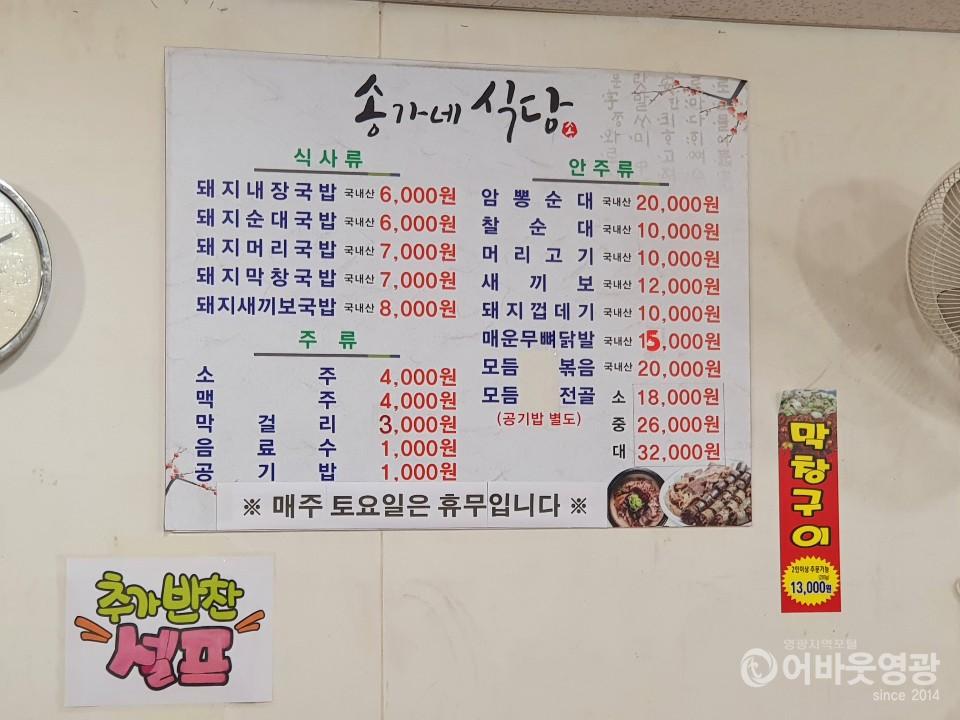 송가네 식당
식사류
돼지내장국밥 국내산 6,000원
돼지순대국밥 국내산 6,000원
돼지머리국밥 국내산 7,000원
돼지막창국밥 국내산 7,000원
돼지새끼보국밥 국내산 8,000원
주류
소주 4,000원
맥주 4,000원
막걸리 3,000원
음료수 1,000원
공기밥 1,000원
안주류
암뽕순대 국내산 20,000원
찰순대 국내산 10,000원
머리고기 국내산 10,000원
새끼보 국내산 12,000원
돼지껍데기 국내산 10,000원
매운무뼈닭발 국내산 15,000원
모듬볶음 국내산 20,000원
모듬전골 소 18,000원
(공기밥 별도) 중 26,000원
대 32,000원
※ 매주 토요일은 휴무입니다 ※
막창구이
2인이상 주문가능
13,000원
추가반찬
셀프
영광지역포털
어바웃영광
since 2014